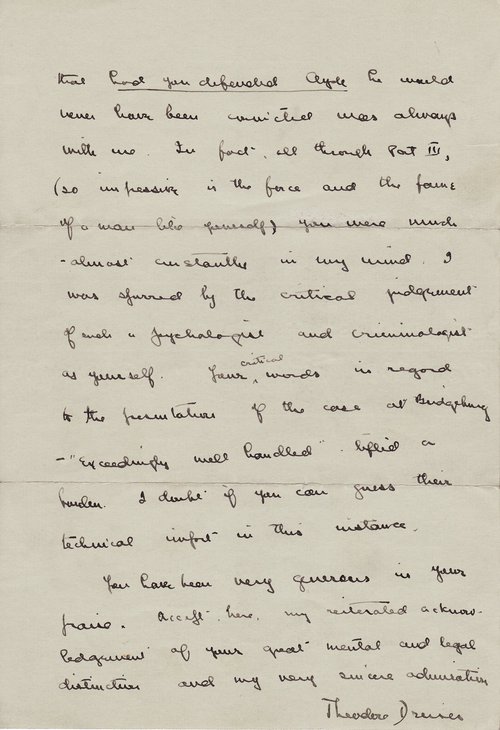 that had you defended Clyde he would
never have been convicted was always
with me. In fact, all through Part III,
(so impressive is the force and the fame
of a man like yourself) you were much
-almost constantly in my mind. I
was spurred by the critical judgement
of such a psychologist and criminologist
as yourself. Your critical words in regard
to the presentation of the case at Bridgeburg
- "exceedingly well handled" lifted a
burden. I doubt if you can guess their
technical import in this instance.
You have been very generous in your
praise. Accept, here, my reiterated acknow-
ledgement of your great mental and legal
distinction and my very sincere admiration
Theodore Dreiser